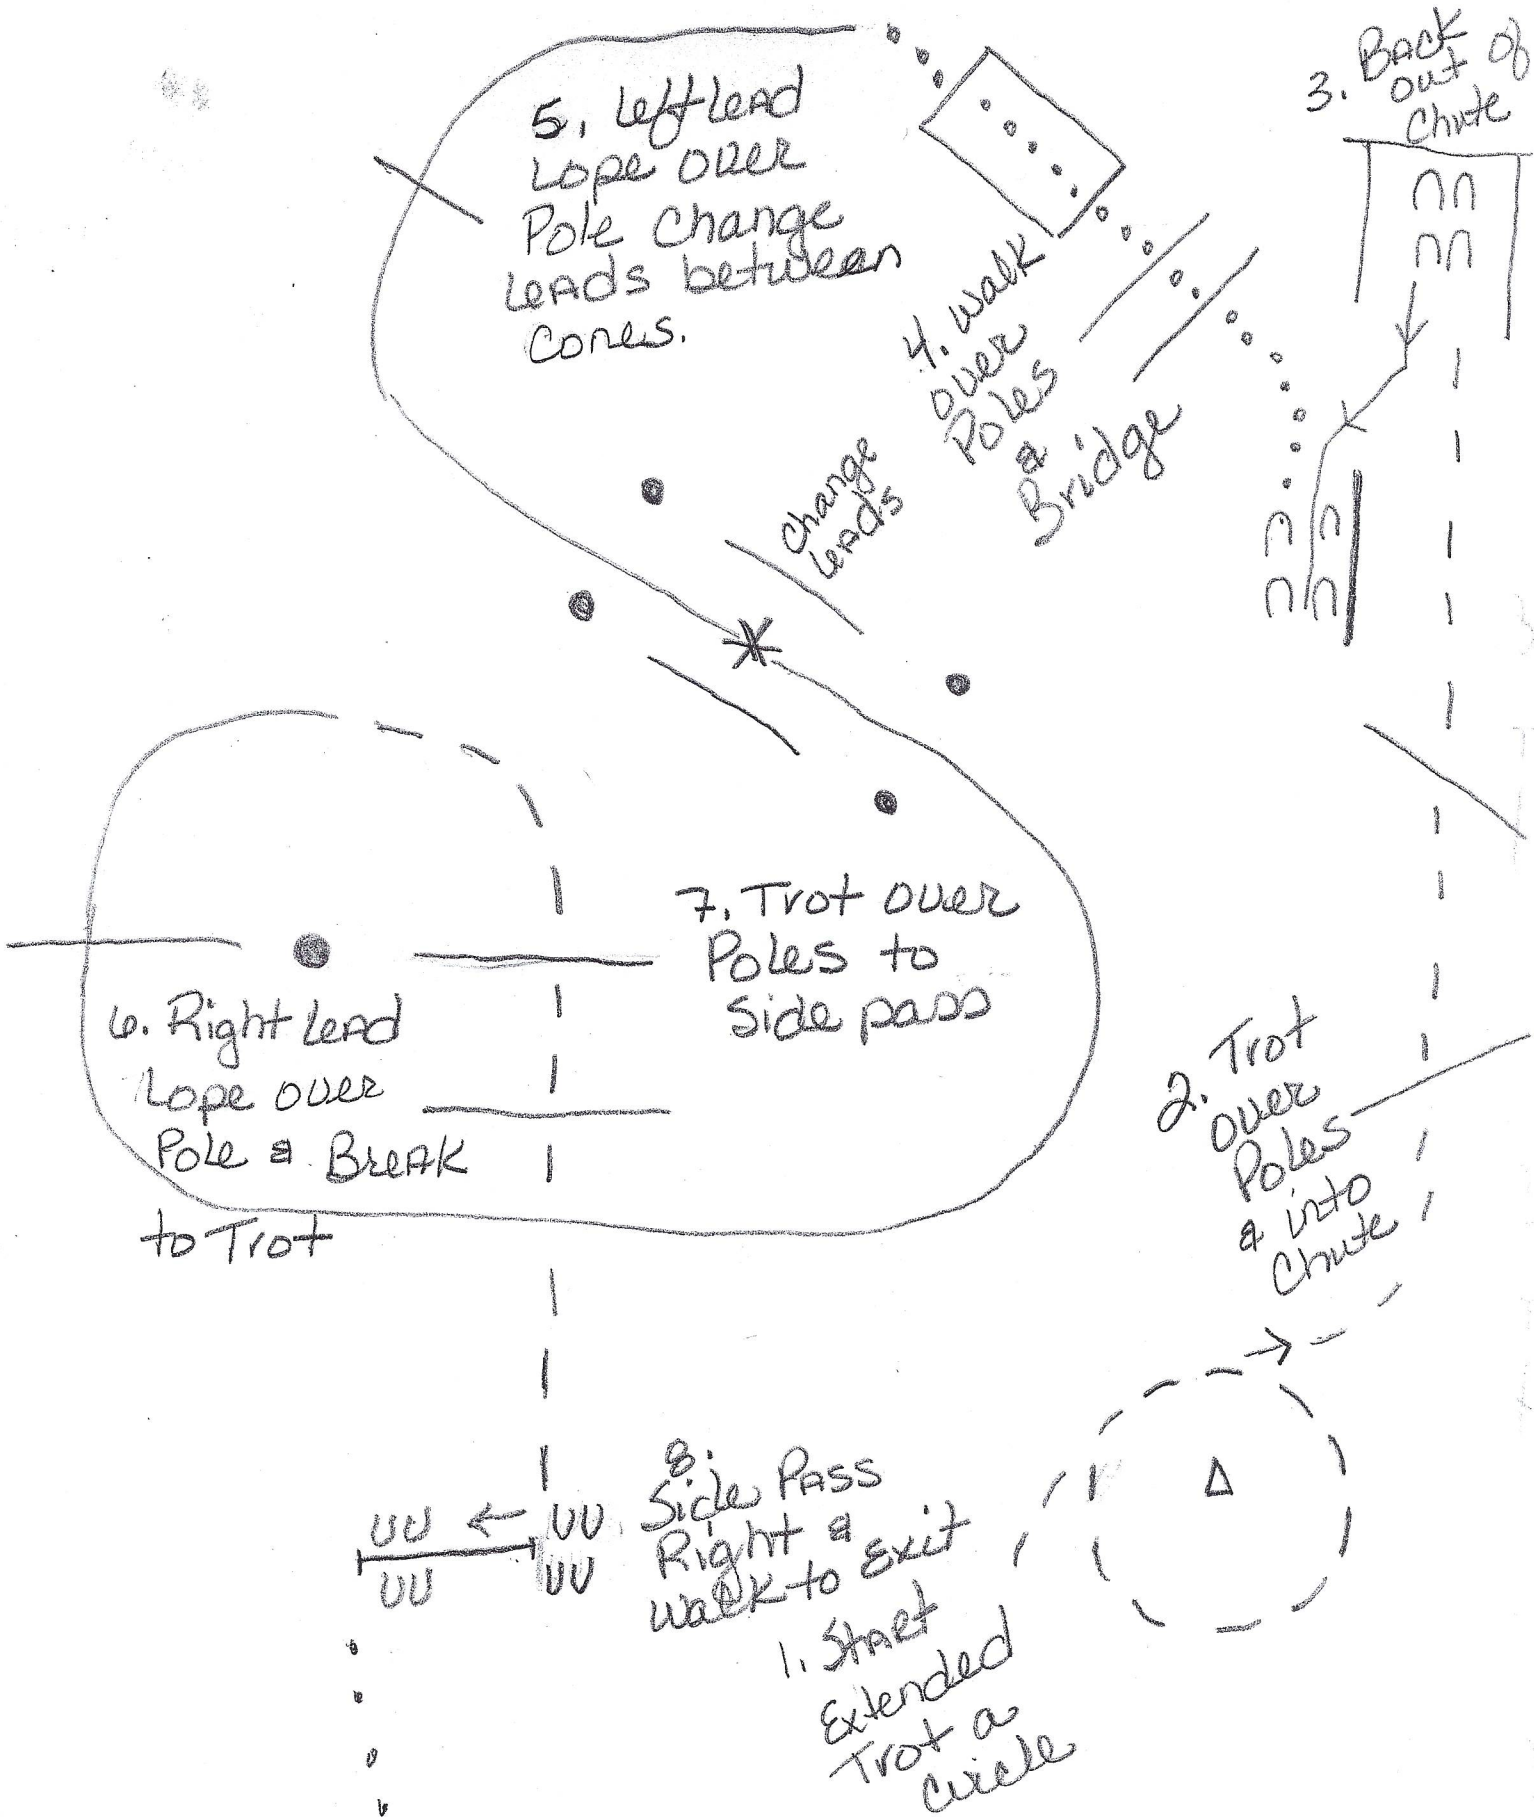 3. Back
out of
Chute
5. Left lead
Lope over
Pole Change
leads between
Cones.
4. Walk
over
Poles
&
Bridge
Change
leads
7. Trot over
Poles to
Side pass
6. Right lead
Lope over
Pole & Break
to Trot
2. Trot
over
Poles
& into
Chute
8.
Side Pass
Right &
Walk to Exit
1. Start
Extended
Trot a
Circle